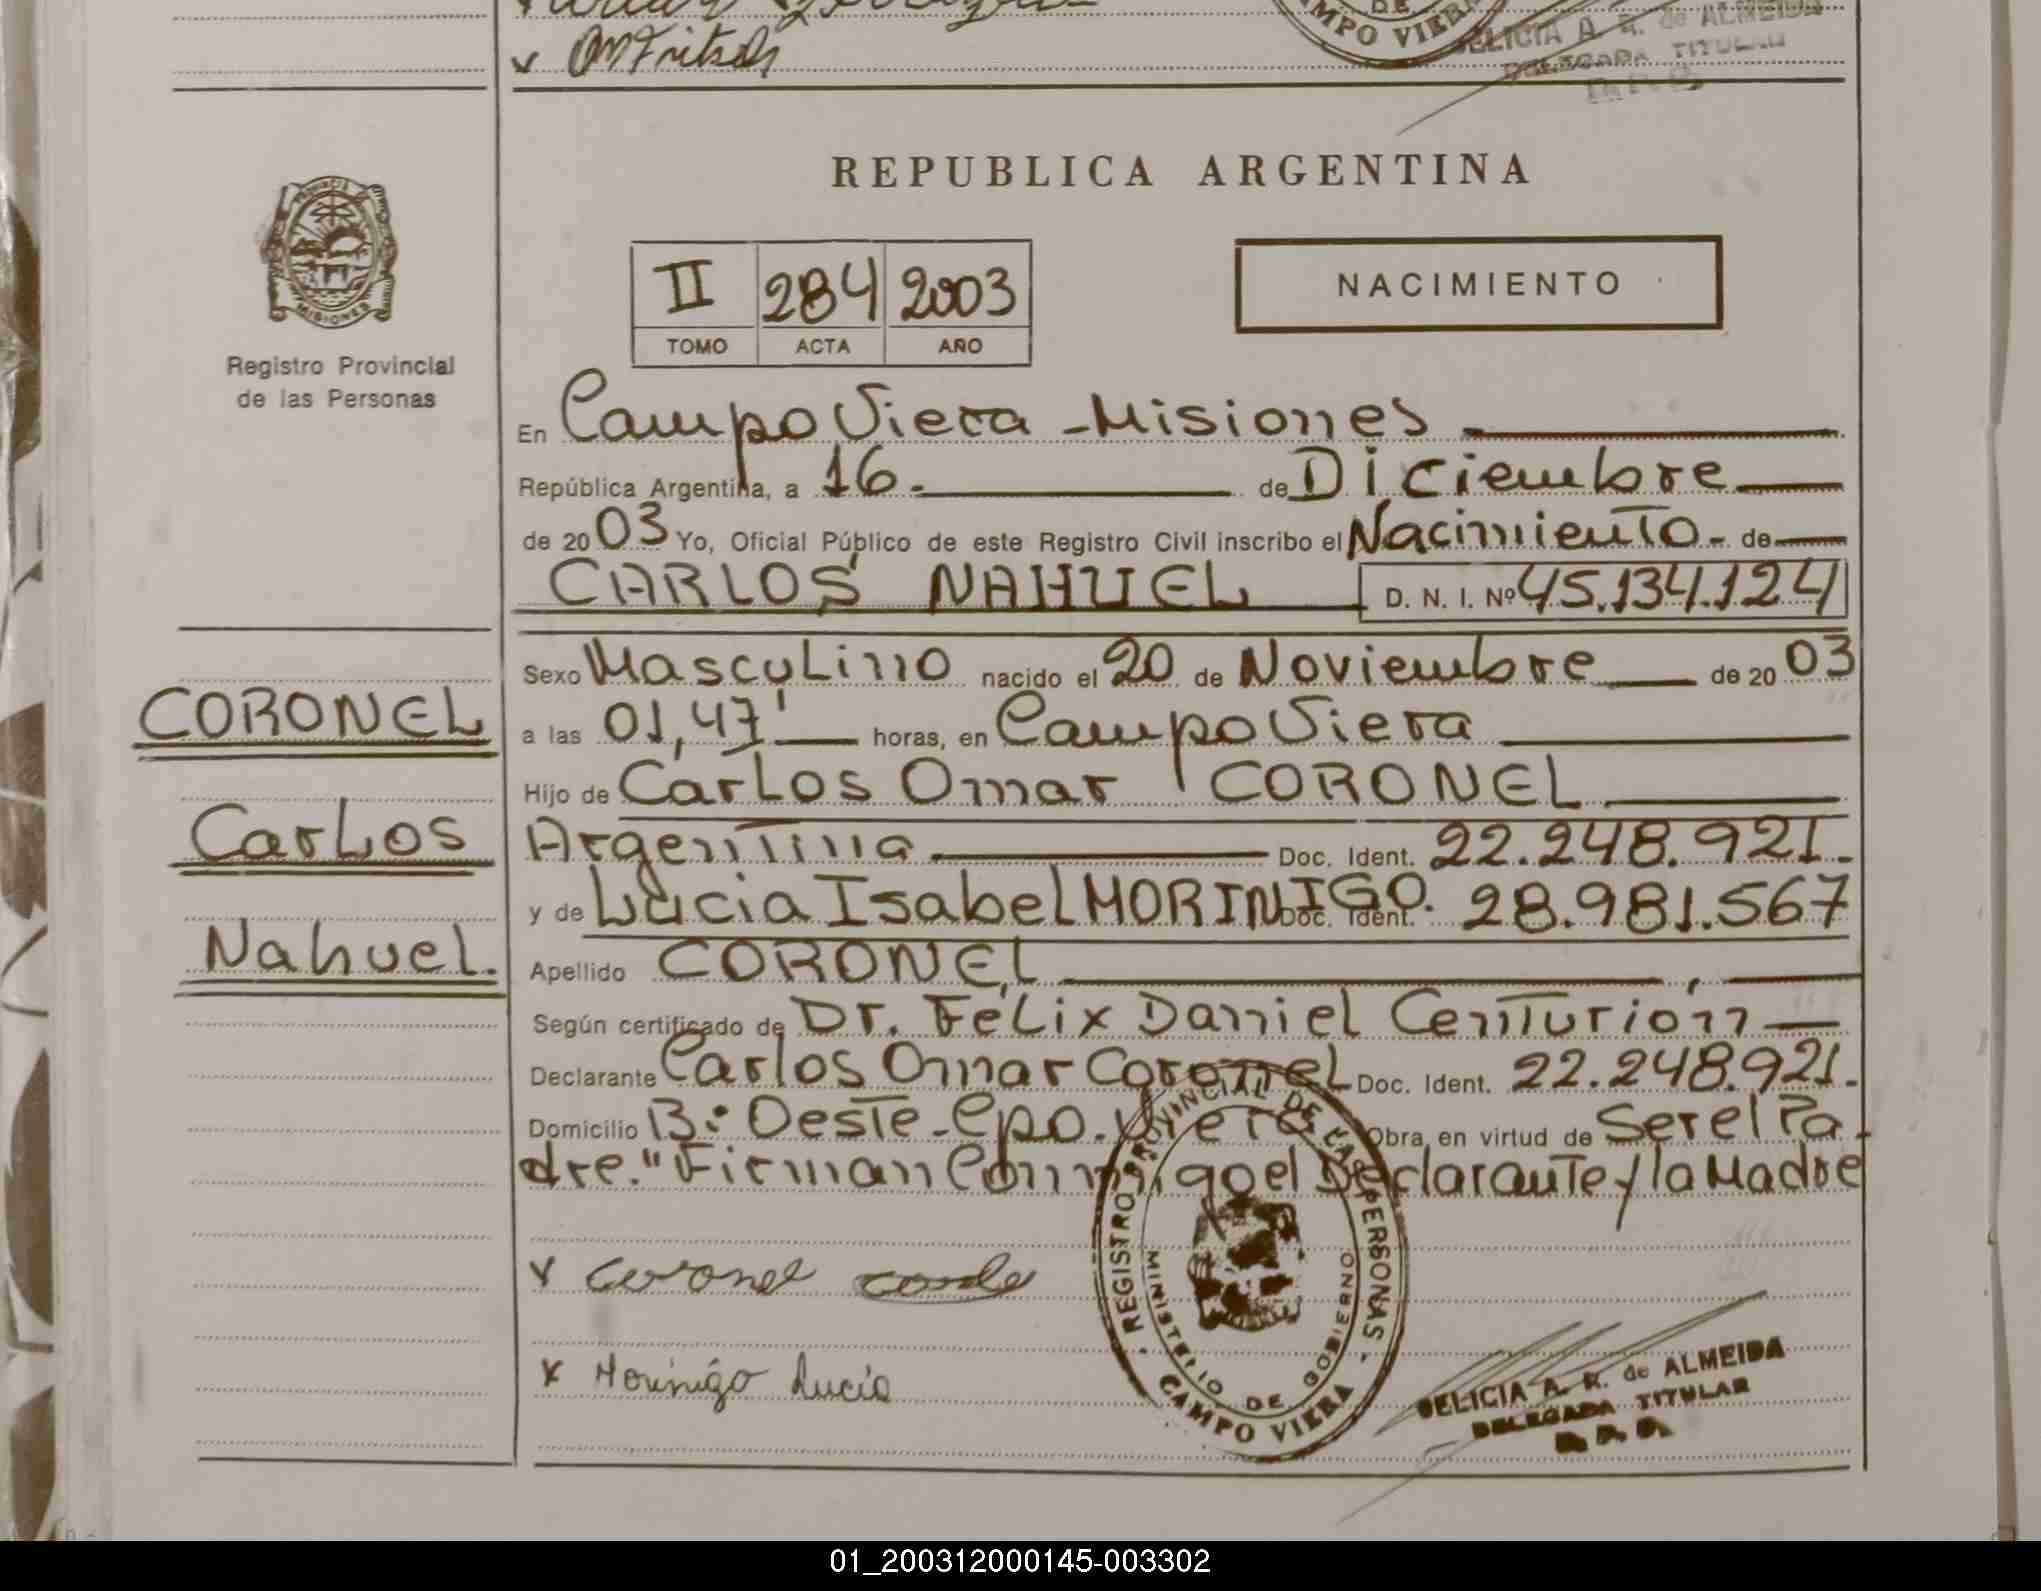 DELICIA A. R. de ALMEIDA
DELEGADA TITULAR
CAMPO VIERA
REPUBLICA ARGENTINA
PROVINCIA
MISIONES
Registro Provincial
de las Personas
II 284 2003
TOMO ACTA AÑO
NACIMIENTO
En Campo Viera - Misiones
República Argentina, a 16. de Diciembre
de 2003 Yo, Oficial Público de este Registro Civil inscribo el Nacimiento - de
CARLOS NAHUEL D. N. I. Nº 45.134.124
Sexo Masculino nacido el 20 de Noviembre de 20 03
CORONEL
a las 01,47' horas, en Campo Viera
Hijo de Carlos Omar CORONEL
Carlos
Argentina Doc. Ident. 22.248.921.
y de Lucia Isabel MORINIGO. Doc. Ident. 28.981.567
Nahuel.
Apellido CORONEL
Según certificado de Dr. Félix Daniel Centurión
Declarante Carlos Omar Coronel Doc. Ident. 22.248.921.
Domicilio B: Oeste - Cpo. Viera Obra en virtud de Ser el Pa
dre." Firman Conmigo el Declarante y la Madre
x Coronel
x Morinigo Lucia
REGISTRO PROVINCIAL DE LAS PERSONAS
MINISTERIO DE GOBIERNO
CAMPO VIERA
DELICIA A. R. de ALMEIDA
DELEGADA TITULAR
01_200312000145-003302